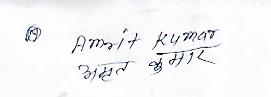 Amrit Kumar
अमृत कुमार